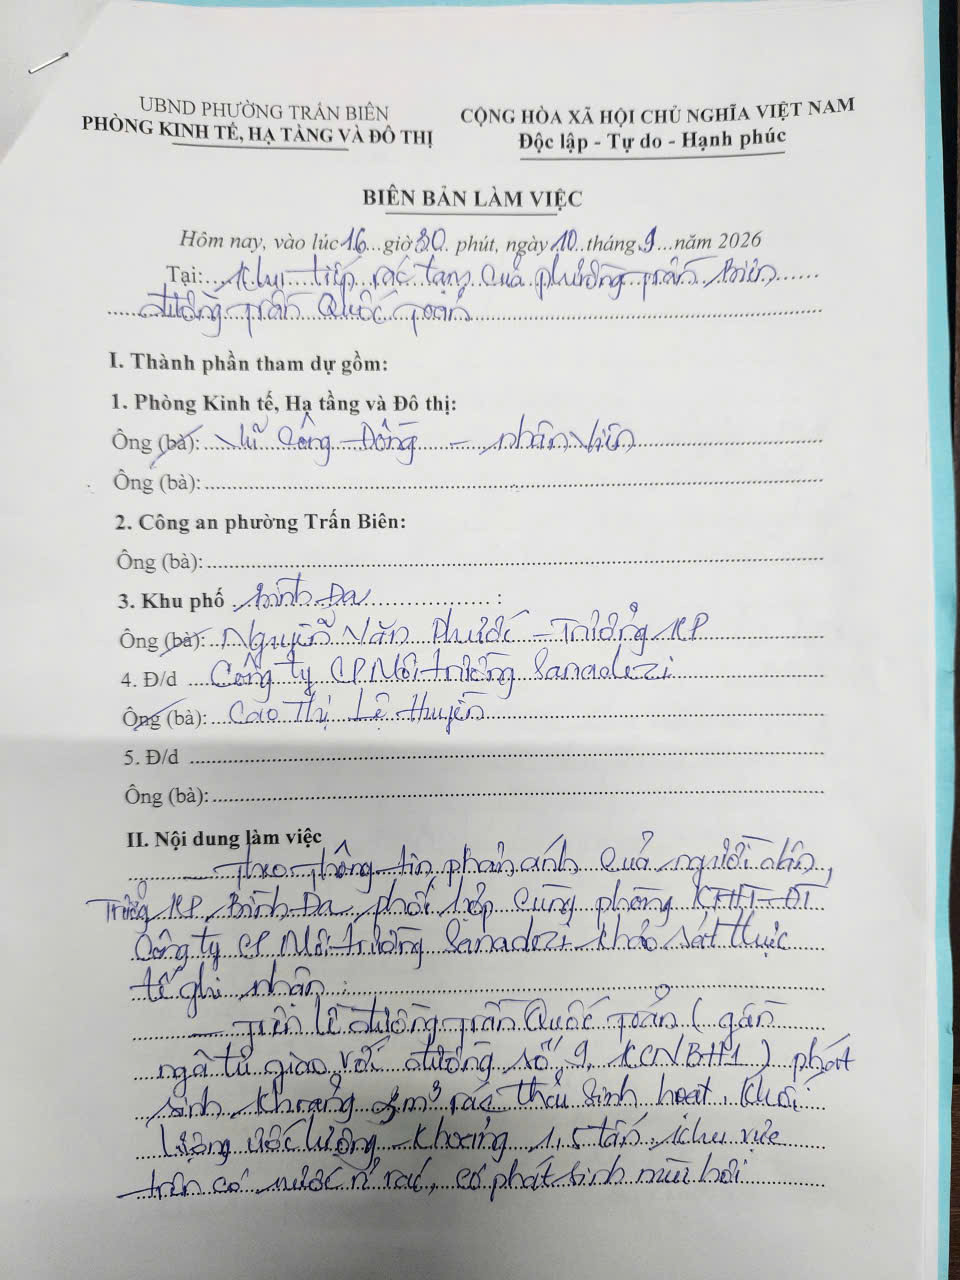 UBND PHƯỜNG TRẤN BIÊN
PHÒNG KINH TẾ, HẠ TẦNG VÀ ĐÔ THỊ
CỘNG HÒA XÃ HỘI CHỦ NGHĨA VIỆT NAM
Độc lập - Tự do - Hạnh phúc
BIÊN BẢN LÀM VIỆC
Hôm nay, vào lúc 16 giờ 30 phút, ngày 10 tháng 9 năm 2026
Tại: Khu tiếp rác tạm của phường Trấn Biên
đường Trần Quốc Toản
I. Thành phần tham dự gồm:
1. Phòng Kinh tế, Hạ tầng và Đô thị:
Ông (bà): Vũ Công Đồng - nhân viên
Ông (bà):
2. Công an phường Trấn Biên:
Ông (bà):
3. Khu phố Bình Đa :
Ông (bà): Nguyễn Văn Phước - Trưởng KP
4. Đ/d Công ty CP Môi trường Sonadezi
Ông (bà): Cao Thị Lệ Huyền
5. Đ/d
Ông (bà):
II. Nội dung làm việc
- Theo thông tin phản ánh của người dân,
Trưởng KP Bình Đa phối hợp cùng phòng KTHT-ĐT
Công ty CP Môi trường Sonadezi khảo sát thực
tế ghi nhận:
- Trên lề đường Trần Quốc Toản (gần
ngã tư giao với đường số 9, KCNBH1) phát
sinh khoảng 3m³ rác thải sinh hoạt. Khối
lượng ước lượng khoảng 1,5 tấn. Khu vực
trên có nước rỉ rác, có phát sinh mùi hôi